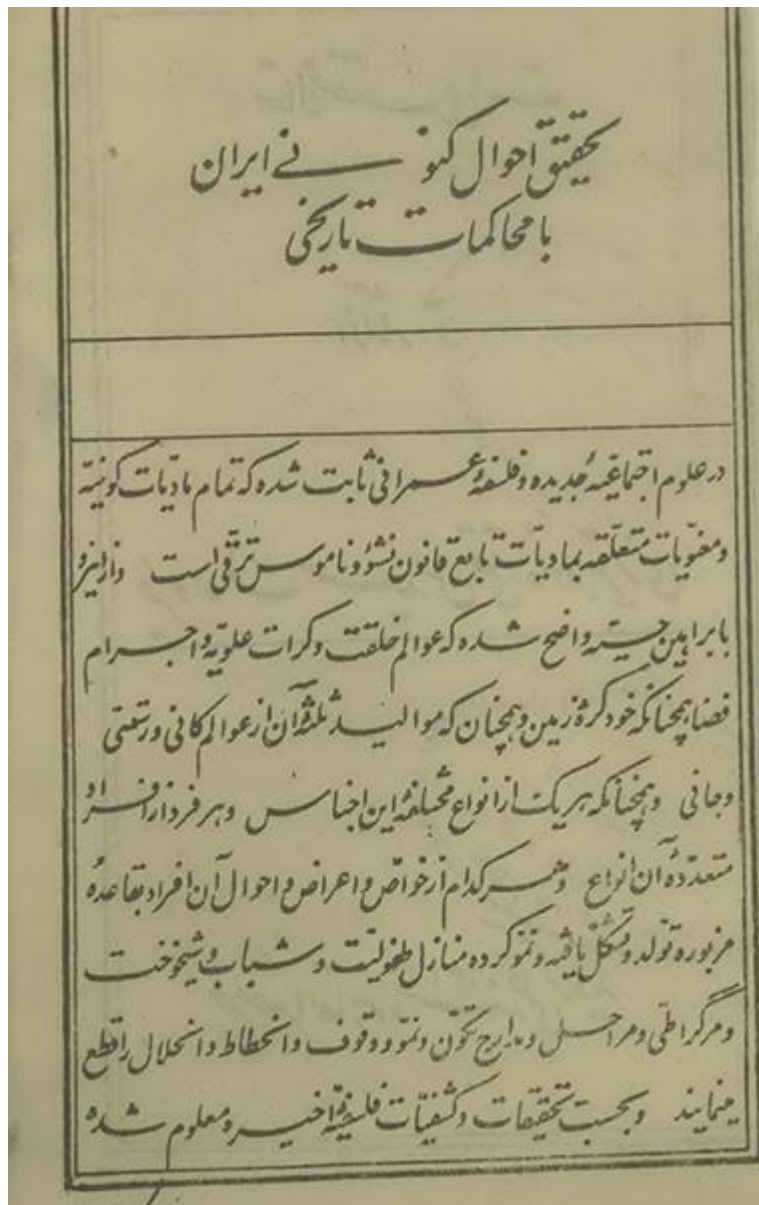 تحقیق احوال کنونی ایران
با محاکمات تاریخی
در علوم اجتماعیهٔ جدیده و فلسفهٔ عمرانی ثابت شده که تمام مادیات کونیّه
و معنویات متعلّقه بمادیّات تابع قانون نشؤ و ناموس ترقی است وازاینرو
با براهین حسیّه واضح شده که عوالم خلقت و کرات علویّه و اجرام
فضا همچنانکه خود کرهٔ زمین و همچنان که موالید ثلثهٔ آن از عوالم کانی و رستنی
و جانی و همچنانکه هر یک از انواع مختلفهٔ این اجناس و هر فرد از افراد
متعدّدهٔ آن انواع و هر کدام از خواصّ و اعراض و احوال آن افراد بقاعدهٔ
مزبوره تولد و تشکّل یافته و نموّ کرده منازل طفولیّت و شباب و شیخوخت
و مرگ را طیّ و مراحل و مدارج تکوّن و نموّ و وقوف و انحطاط و انحلال را قطع
مینمایند و بحسب تحقیقات و کشفیّات فلسفیّهٔ اخیره معلوم شده